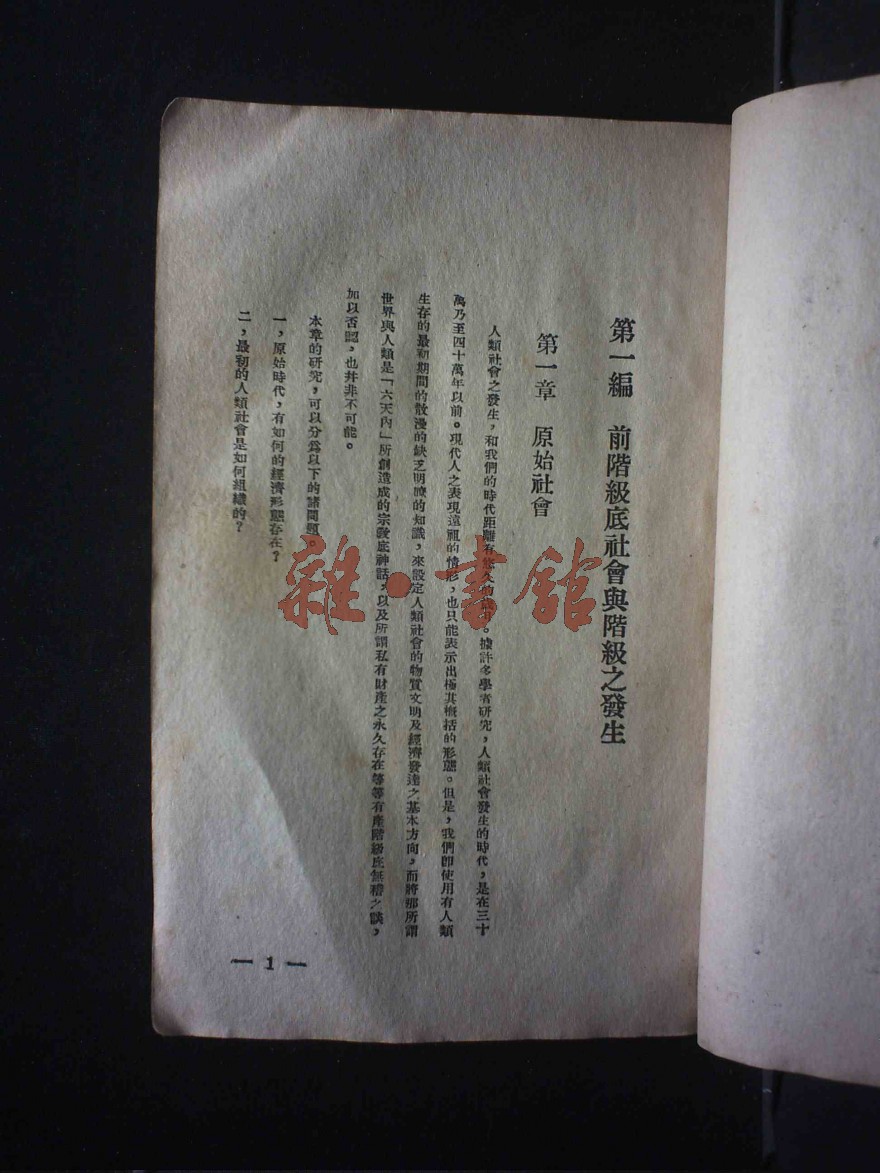 第一編　前階級底社會與階級之發生
第一章　原始社會
人類社會之發生，和我們的時代距離有悠久的。據許多學者研究，人類社會發生的時代，是在三十
萬乃至四十萬年以前。現代人之表現遠祖的情形，也只能表示出極其概括的形態。但是，我們即使用有人類
生存的最初期間的散漫的缺乏明瞭的知識，來設定人類社會的物質文明及經濟發達之基本方向，而將那所謂
世界與人類是「六天內」所創造成的宗教底神話，以及所謂私有財產之永久存在等等有產階級底無稽之談，
加以否認，也并非不可能。
本章的研究，可以分爲以下的諸問題。
一，原始時代，有如何的經濟形態存在？
二，最初的人類社會是如何組織的？
— 1 —
雜·書館